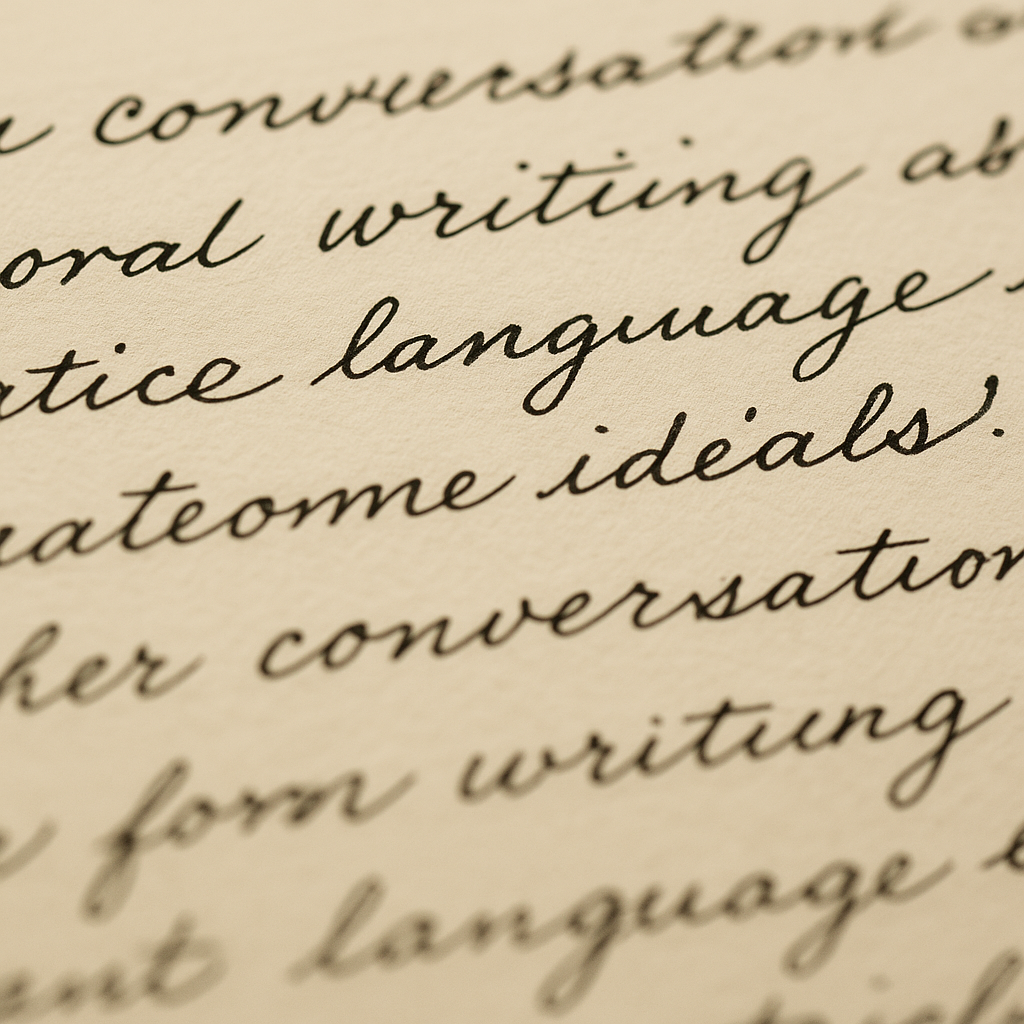 conversation
oral writiing ab
atice language
uateome ideals'.
her conversation
form writung
ent language